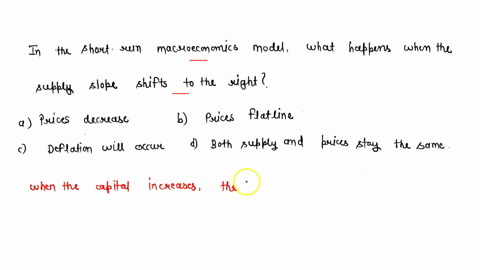 In the short-run macroeconomics model, what happens when the
supply slope shifts to the right?
a) Prices decrease b) Prices flatline.
c) Deflation will occur d) Both supply and prices stay the same.
when the capital increases, the